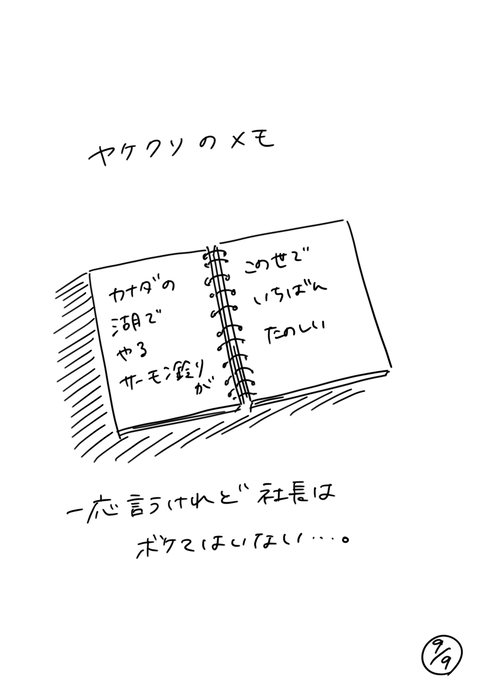 ヤケクソのメモ
カナダの
湖で
やる
サーモン釣り
が
この世で
いちばん
たのしい
一応言うけれど社長は
ボケてはいない…。
9/9